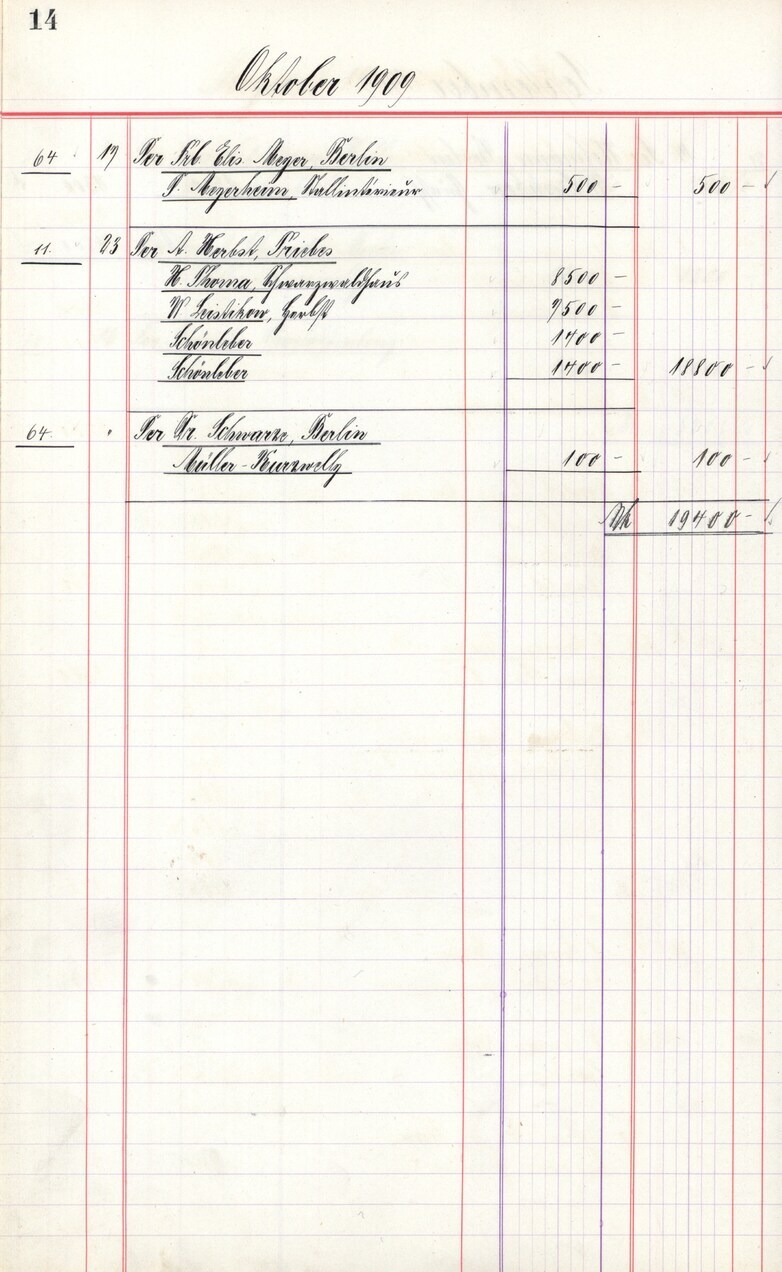 14
Oktober 1909
64 19 Per Frl. Elis. Meyer, Berlin
P. Meyerheim, Stallintérieur 500 – 500 –
11. 23 Per A. Herbst, Triebes
H. Thoma, Schwarzwaldhaus 8500 –
W Leistikow, Herbst 7500 –
Schönleber 1400 –
Schönleber 1400 – 18800 –
64. " Per Dr. Schwarze, Berlin
Müller-Kurzwelly 100 – 100 –
Mk 19400 –